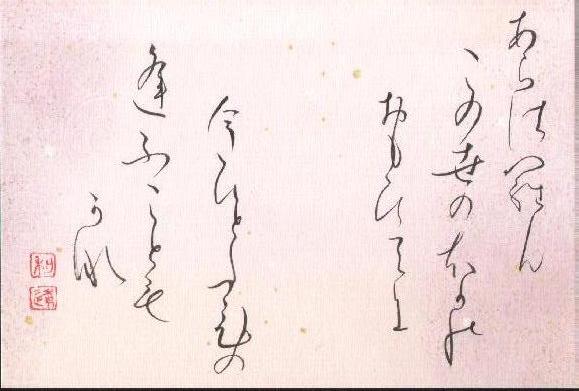 あら佐羅ん
この世のほかの
おもひてに
今ひとたひの
逢ふことも
可那